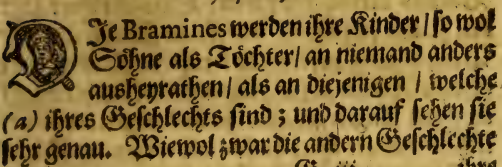 DJe Bramines werden ihre Kinder / so wol
Söhne als Töchter / an niemand anders
ausheyrathen / als an diejenigen / welche
(a) ihres Geschlechts sind ; und darauf sehen sie
sehr genau. Wiewol zwar die andern Geschlechte